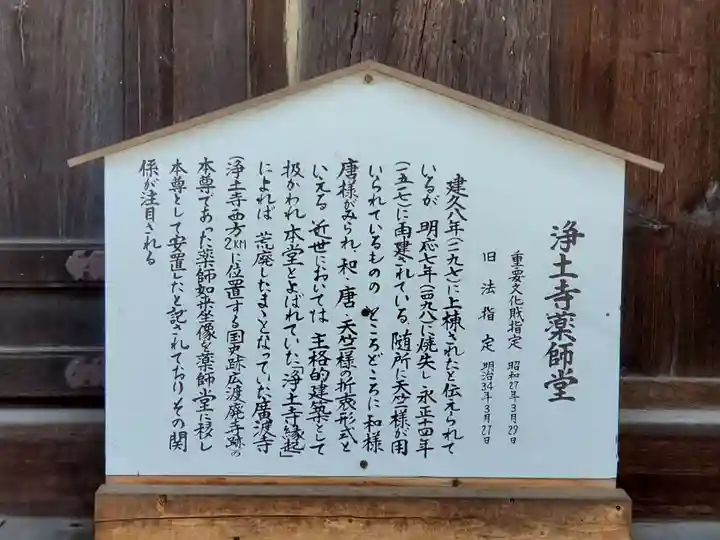 浄土寺薬師堂
重要文化財指定 昭和27年3月29日
旧法指定 明治34年3月27日
建久八年(一一九七)に上棟されたと伝えられて
いるが 明応七年(一四九八)に焼失し 永正十四年
(一五一七)に再建されている。随所に天竺様が用
いられているものの ところどころに和様
唐様がみられ、和・唐・天竺様の折衷形式と
いえる 近世においては 主格的建築として
扱かわれ 本堂とよばれていた「浄土寺縁起」
によれば 荒廃したまゝとなっていた廣渡寺
(浄土寺西方2KMに位置する国史跡広渡廃寺跡の
本尊であった薬師如来坐像を薬師堂に移し
本尊として安置したと記されておりその関
係が注目される